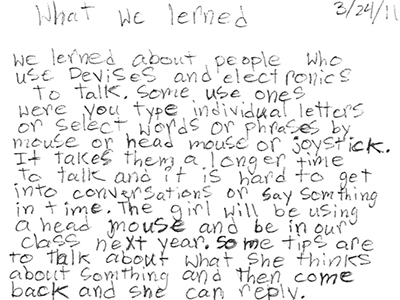 What we lerned 3/24/11
we lerned about people who
use Devises and electronics
to talk. Some use ones
were you type individual letters
or select words or phrases by
mouse or head mouse or joystick.
It takes them a longer time
to talk and it is hard to get
into conversations or say somthing
in time. The girl will be using
a head mouse and be in our
class next year. Some tips are
to talk about what she thinks
about somthing and then come
back and she can reply.